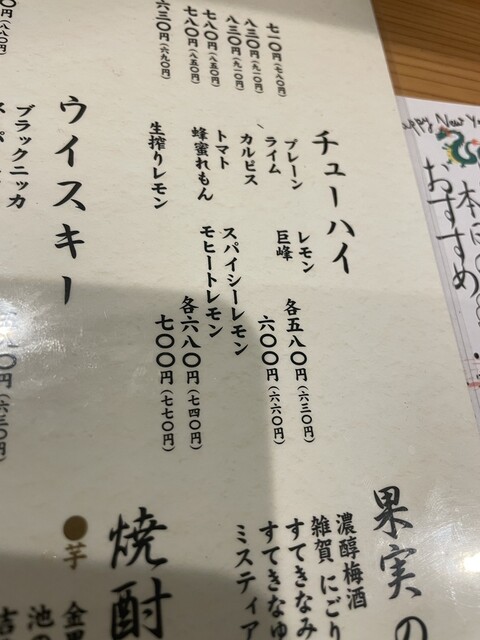 七一〇円(七八〇円)
八三〇円(九一〇円)
八三〇円(九一〇円)
七八〇円(八五〇円)
七八〇円(八五〇円)
六三〇円(六九〇円)
チューハイ
プレーン レモン 各五八〇円(六三〇円)
ライム 巨峰
カルピス 六〇〇円(六六〇円)
トマト スパイシーレモン
蜂蜜れもん モヒートレモン 各六八〇円(七四〇円)
生搾りレモン 七〇〇円(七七〇円)
ウイスキー
ブラックニッカ
円(六三〇円)
果実の
濃醇梅酒
雑賀 にごり
すてきなみ
すてきなゆ
ミスティア
焼酎
●芋
Happy New
本日の
おすすめ